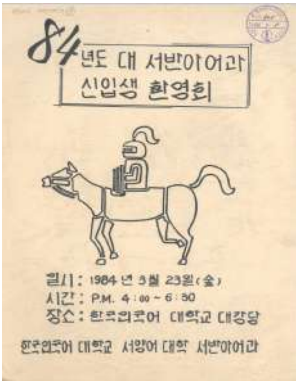 84년도 대 서반아어과
신입생 환영회
일시: 1984년 3월 23일(金)
시간: P.M. 4:00~6:30
장소: 한국외국어 대학교 대강당
한국외국어 대학교 서양어 대학 서반아어과